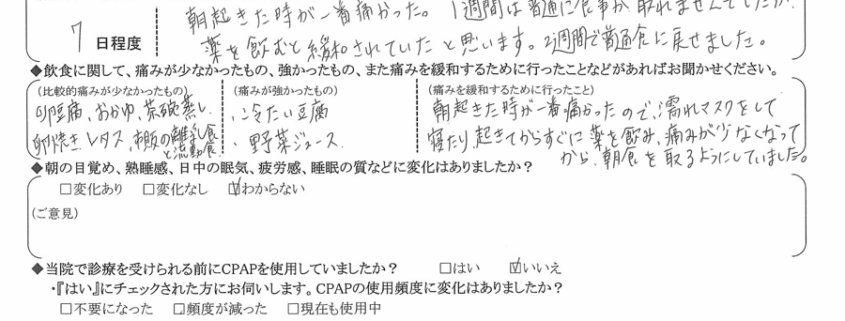 朝起きた時が一番痛かった。1週間は普通に食事が取れませんでしたが、
7 日程度
薬を飲むと緩和されていたと思います。2週間で普通食に戻せました。
◆飲食に関して、痛みが少なかったもの、強かったもの、また痛みを緩和するために行ったことなどがあればお聞かせください。
(比較的痛みが少なかったもの)
卵豆腐、おかゆ、茶碗蒸し、
卵焼き レタス、市販の離乳食
と流動食
(痛みが強かったもの)
・冷たい豆腐
・野菜ジュース
(痛みを緩和するために行ったこと)
朝起きた時が一番痛かったので、濡れマスクをして
寝たり、起きてからすぐに薬を飲み、痛みが少なくなって
から、朝食を取るようにしていました。
◆朝の目覚め、熟睡感、日中の眠気、疲労感、睡眠の質などに変化はありましたか?
□変化あり □変化なし ☑わからない
(ご意見)
◆当院で診療を受けられる前にCPAPを使用していましたか? □はい ☑いいえ
・『はい』にチェックされた方にお伺いします。CPAPの使用頻度に変化はありましたか?
□不要になった □頻度が減った □現在も使用中